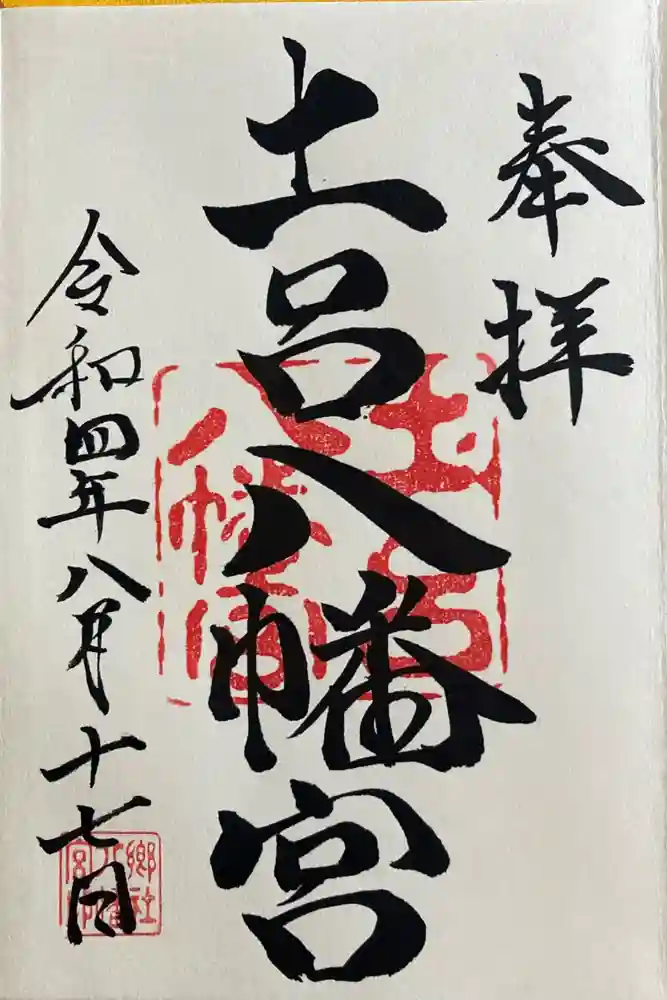 奉拝
土呂八幡宮
令和四年八月十七日
土呂
八幡宮